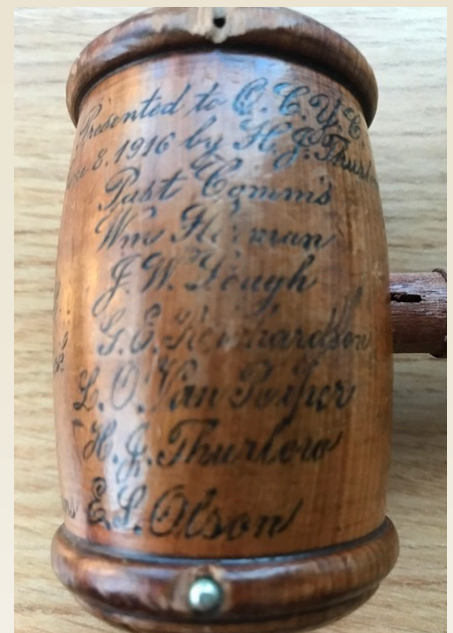 Presented to O.C.Y.C.
8, 1916 by H.J. Thurlow
Past Comm's
Wm
J.W. Lough
G.E. Richardson
L.O. Van
H.J. Thurlow
E.S. Olson